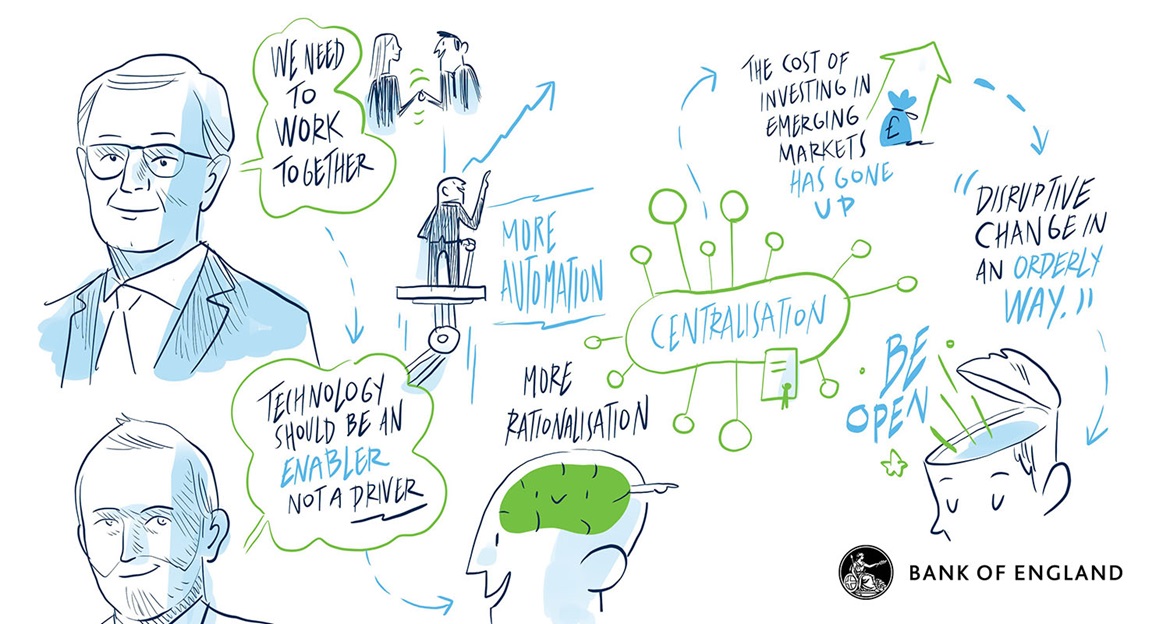 WE NEED
TO
WORK
TOGETHER
TECHNOLOGY
SHOULD BE AN
ENABLER
NOT A DRIVER
MORE
AUTOMATION
MORE
RATIONALISATION
CENTRALISATION
THE COST OF
INVESTING IN
EMERGING
MARKETS
HAS GONE
UP
£
"DISRUPTIVE
CHANGE IN
AN ORDERLY
WAY."
BE
OPEN
BANK OF ENGLAND